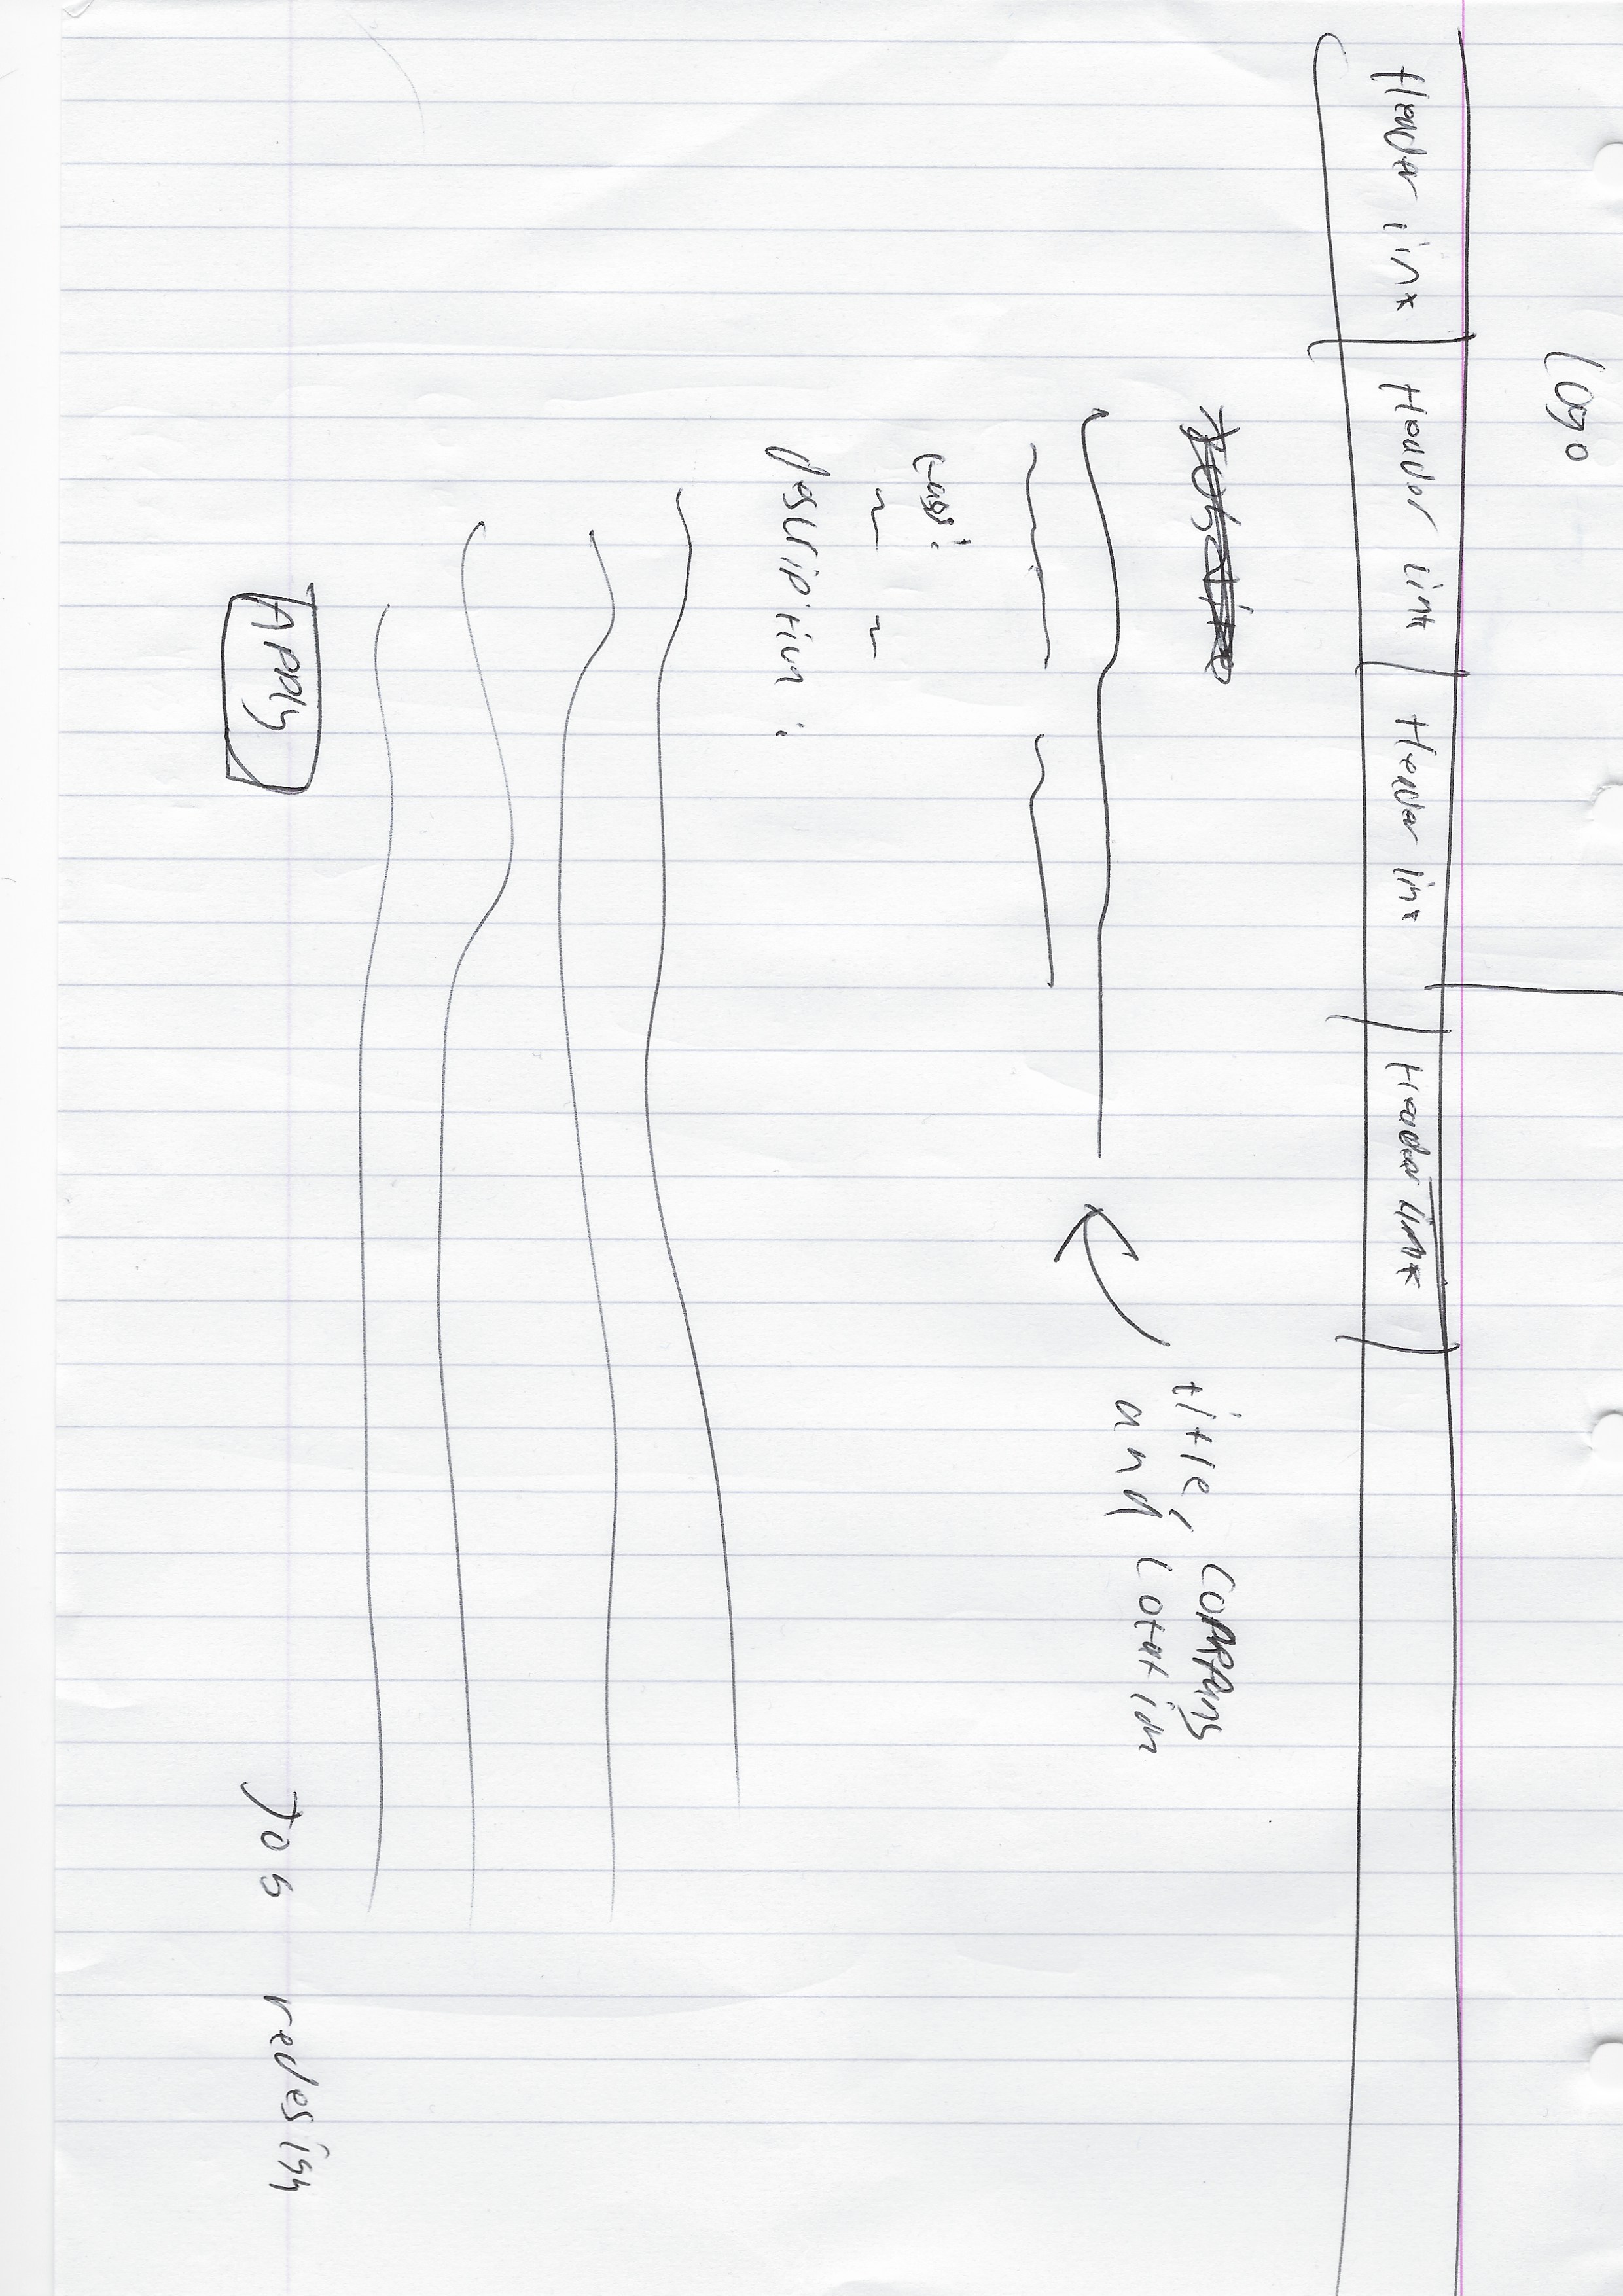 Logo
Header link Header link Header link Header link
title, company
and location
tags:
description:
Apply
Job redesign